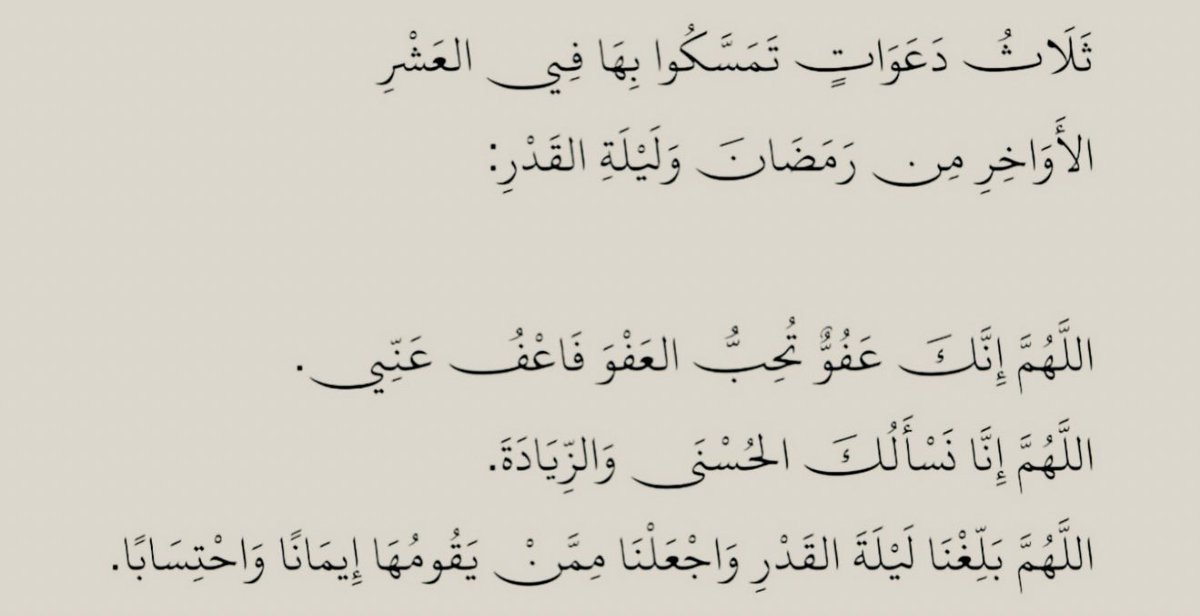 ثَلَاثُ دَعَوَاتٍ تَمَسَّكُوا بِهَا فِي العَشْرِ
الأَوَاخِرِ مِن رَمَضَانَ وَلَيْلَةِ القَدْرِ:
اللَّهُمَّ إِنَّكَ عَفُوٌّ تُحِبُّ العَفْوَ فَاعْفُ عَنِّي.
اللَّهُمَّ إِنَّا نَسْأَلُكَ الحُسْنَى وَالزِّيَادَةَ.
اللَّهُمَّ بَلِّغْنَا لَيْلَةَ القَدْرِ وَاجْعَلْنَا مِمَّنْ يَقُومُهَا إِيمَانًا وَاحْتِسَابًا.